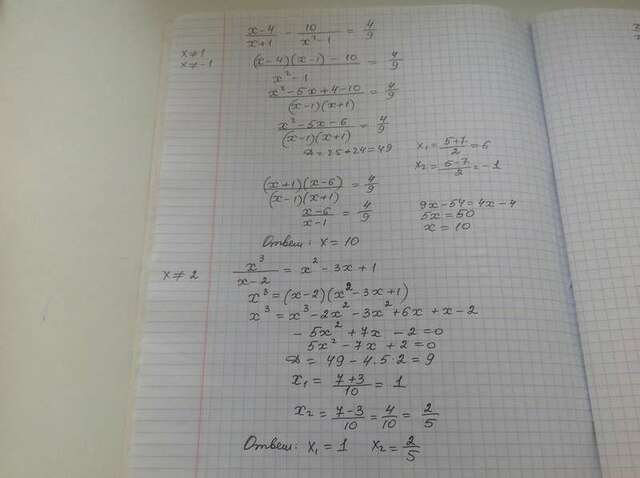 (x-4)/(x+1) - 10/(x²-1) = 4/9
x≠1
x≠-1
((x-4)(x-1)-10)/(x²-1) = 4/9
(x²-5x+4-10)/((x-1)(x+1)) = 4/9
(x²-5x-6)/((x-1)(x+1)) = 4/9
D=25+24=49
x₁=(5+7)/2=6
x₂=(5-7)/2=-1
((x+1)(x-6))/((x-1)(x+1)) = 4/9
(x-6)/(x-1) = 4/9
9x-54=4x-4
5x=50
x=10
Ответ: x=10
x≠2
x³/(x-2) = x²-3x+1
x³=(x-2)(x²-3x+1)
x³=x³-2x²-3x²+6x+x-2
-5x²+7x-2=0
5x²-7x+2=0
D=49-4.5.2=9
x₁=(7+3)/10=1
x₂=(7-3)/10=4/10=2/5
Ответ: x₁=1 x₂=2/5